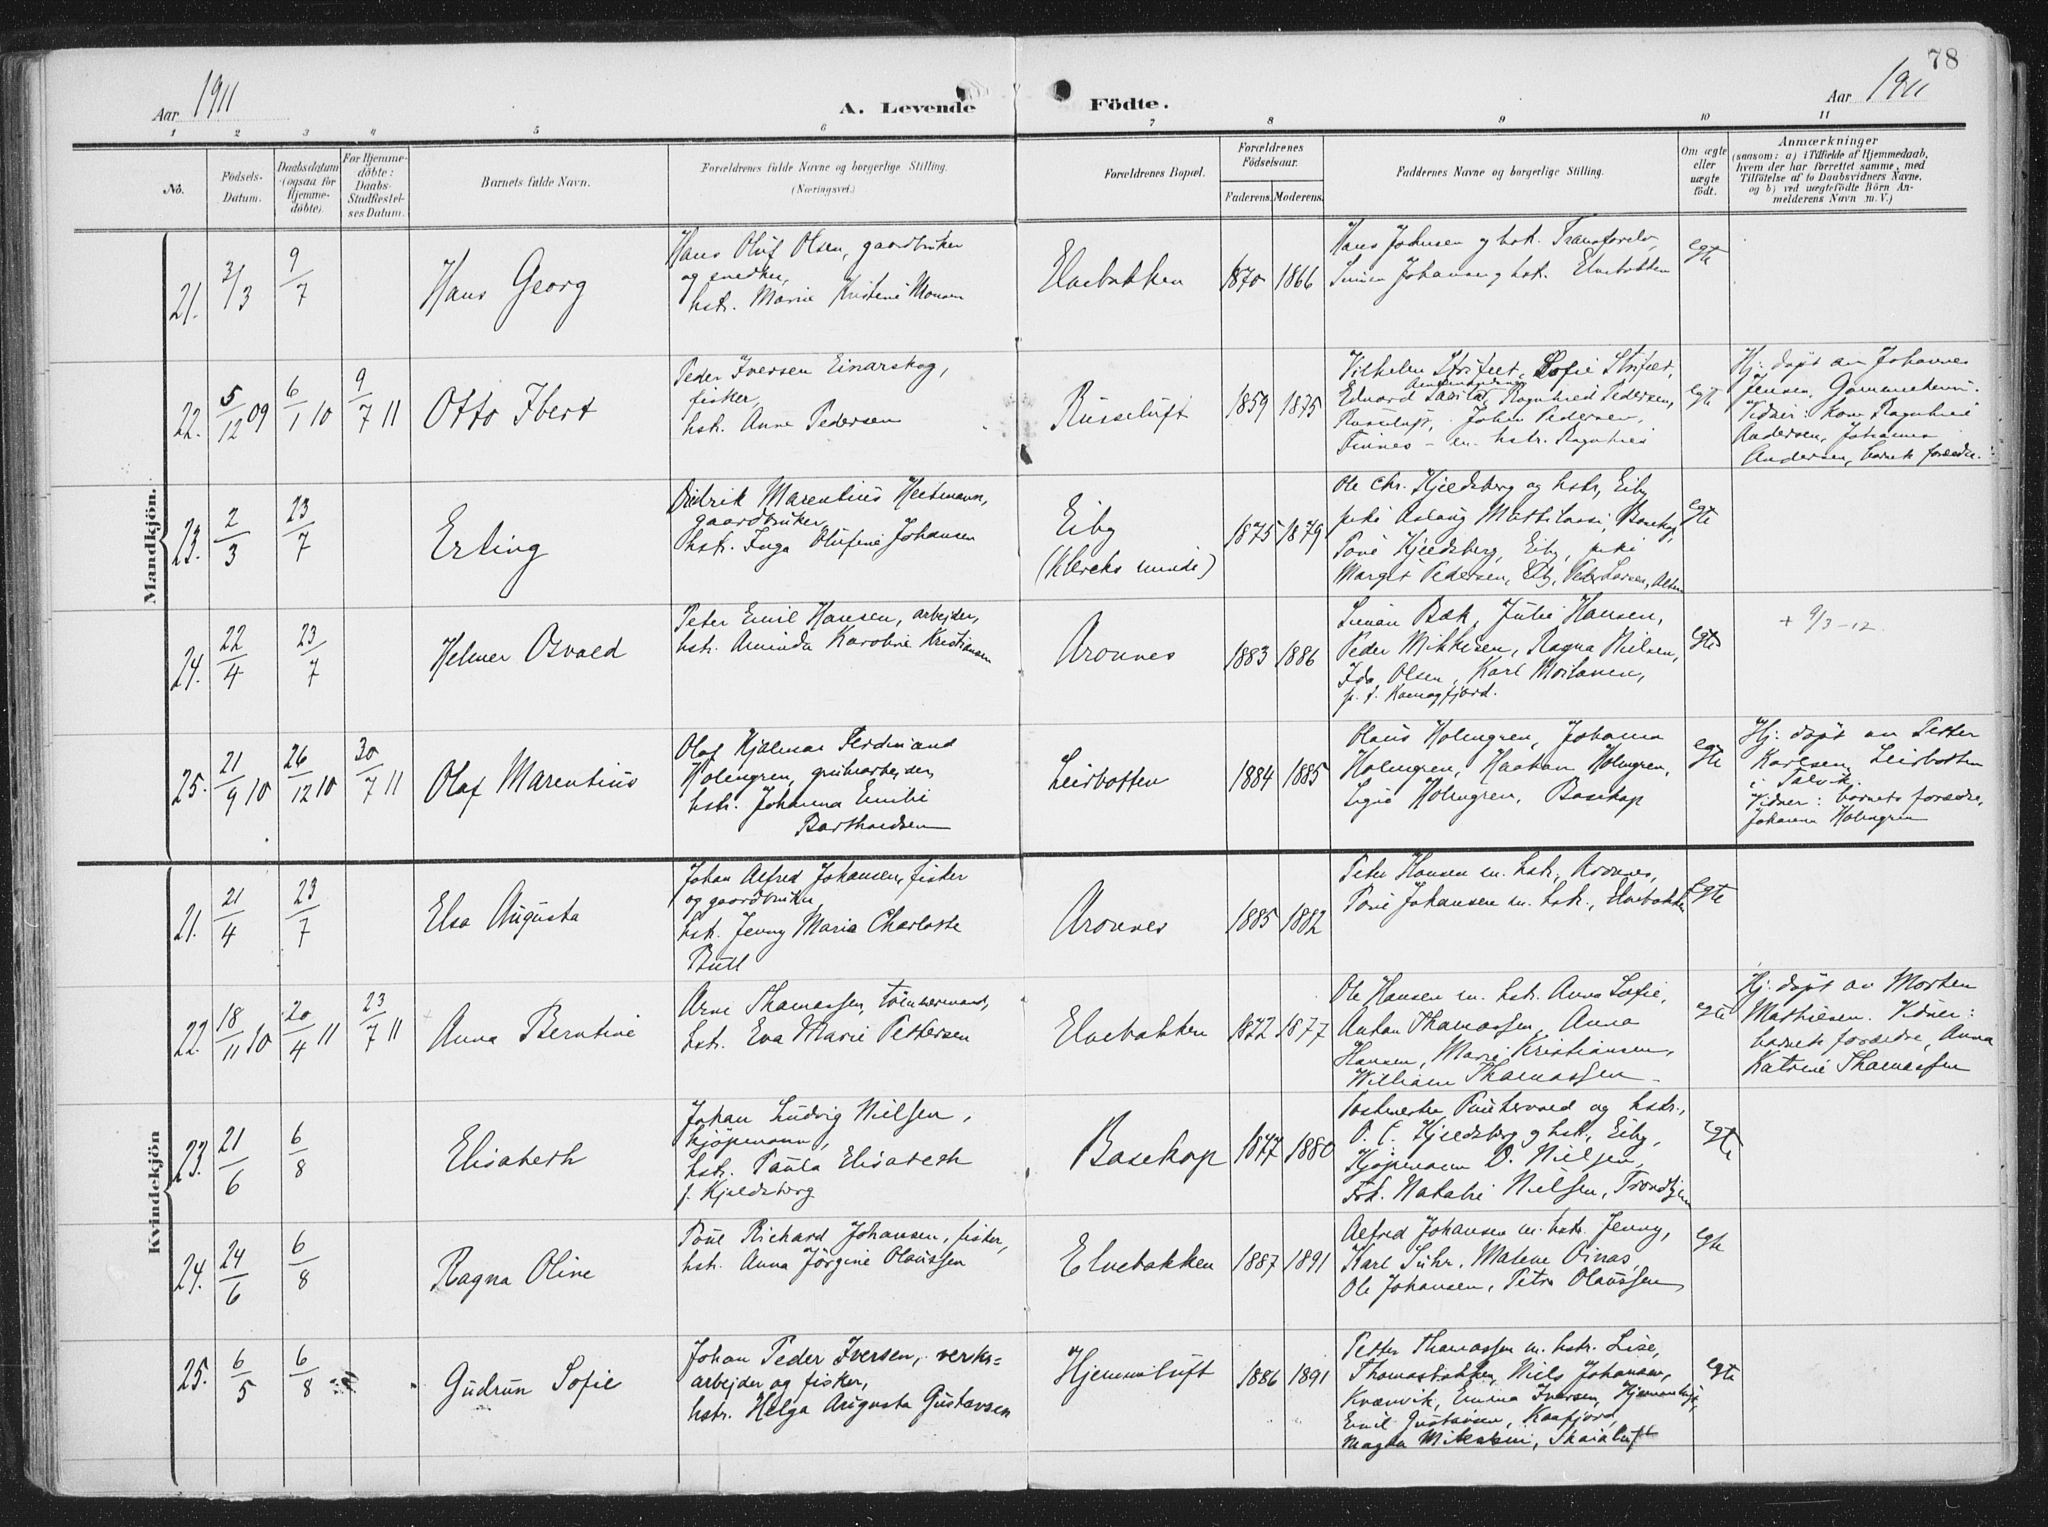 78
Aar 1911
A. Levende Födte.
Aar 1911
1 2 3 4 5 6 7 8 9 10 11
No.
Födsels-Datum.
Daabsdatum (ogsaa for Hjemme-döbte).
For Hjemme-döbte: Daabs-Stadfæstel-ses Datum.
Barnets fulde Navn.
Forældrenes fulde Navne og borgerlige Stilling.
(Næringsvei.)
Forældrenes Bopæl.
Forældrenes Födselsaar.
Faderens. Moderens.
Faddernes Navne og borgerlige Stilling.
Om ægte eller uægte födt.
Anmærkninger
(saasom: a) i Tilfælde af Hjemmedaab, hvem der har forrettet samme, med Tilföielse af to Daabsvidners Navne, og b) ved uægtefödte Börn An-melderens Navn m. V.)
Mandkjön.
21. 3/3 9/7 Hans Georg
Hans Oluf Olsen, gaardbruker
og snedker,
hst. Marie Kristine Monsen
Elvebakken 1870 1866
Hans Johnsen og hst. Tranfarelv,
Simon Johansen og hst. Elvebakken
egte
22. 5/12 09 6/1 10 9/7 11 Otto Ibert
Peder Iversen Einarskog,
fisker,
hst. Anne Pedersen
Russeluft 1859 1875
Vilhelm Strifeet, Sofie Strifeet,
Edvard Ragnhild Pedersen,
Russeluft, Johan Pedersen,
Finnes – m. hstr. Ragnhild
egte
Hj. døpt av Johannes
Jensen, Gammelheim.
Vidner: kone Ragnhild
Andersen, Johannes
Andersen, barnets forældre.
23. 2/3 23/7 Erling
Didrik Marentius Heitmann,
gaardbruker
hst. Inga Olufine Johansen
Eiby
(Klerks minde)
1875 1879
Ole Chr. Kjeldsberg og hstr, Eiby
pike Aslaug Mathilassi, Bosekop,
Tove Kjeldsberg, Eiby, pike
Margit Pedersen, Eiby, Peder Larsen, Alten
egte
24. 22/4 23/7 Helmer Osvald
Peter Emil Hansen, arbejder,
hst. Aminda Karoline Kristiansen
Aronnes 1883 1886
Simon Bæk, Julie Hansen,
Peder Mikkelsen, Ragna Nielsen,
Ida Olsen, Karl Moilanen,
p. t. Komagfjord.
egte
+ 9/3-12.
25. 21/9 10 26/12 10 30/7 11 Olaf Marentius
Olaf Hjalmar Ferdinand
Holmgren, grubearbejder,
hst. Johanna Emilie
Bartholdsen
Leirbotten 1884 1885
Olaus Holmgren, Johanna
Holmgren, Haakon Holmgren,
Signe Holmgren, Bosekop
egte
Hj. døpt av Petter
Karlsen, Leirbotten
i Talvik.
Vidner: barnets forældre,
Johanna Holmgren
Kvindekjön
21. 21/4 23/7 Elsa Augusta
Johan Alfred Johansen, fisker
og gaardbruker,
hst. Jenny Marie Charlotte
Bull
Aronnes 1885 1882
Peter Hansen m. hst., Aronnes,
Povel Johansen m. hst., Elvebakken
egte
22. 18/11 10 20/4 11 23/7 11 Anna Berntine
Arne Thomassen, tömmermand,
hst. Eva Marie Pettersen
Elvebakken 1872 1877
Ole Hansen m. hst. Anna Sofie,
Anton Thomassen, Anna
Hansen, Marie Kristiansen,
William Thomassen.
egte
Hj. døpt av Morten
Mathiesen. Vidner:
barnets forældre, Anna
Katrine Thomassen
23. 21/6 6/8 Elisabeth
Johan Ludvig Nielsen,
kjöpmann,
hst. Paula Elisabeth
f. Kjeldsberg
Bosekop 1877 1880
Postmester Pundervold og hstr.,
O. C. Kjeldsberg og hst., Eiby,
Kjöpmann O. Nielsen,
Frk. Natalie Nielsen, Trondhjem
egte
24. 24/6 6/8 Ragna Oline
Povel Richard Johansen, fisker,
hst. Anna Jörgine Olaussen
Elvebakken 1887 1891
Alfred Johansen m. hst. Jenny,
Karl Suhr, Malene Oinas,
Ole Johansen, Petra Olaussen
egte
25. 6/5 6/8 Gudrun Sofie
Johan Peder Iversen, verks-
arbejder og fisker,
hst. Helga Augusta Gustavsen
Hjemmeluft 1886 1891
Petter Thomassen m. hst. Lise,
Thomasbakken, Niels Johansen,
Kvænvik, Emma Iversen, Hjemmeluft,
Emil Gustavsen, Kaafjord,
Magda Mikkelsen, Skaialuft
egte